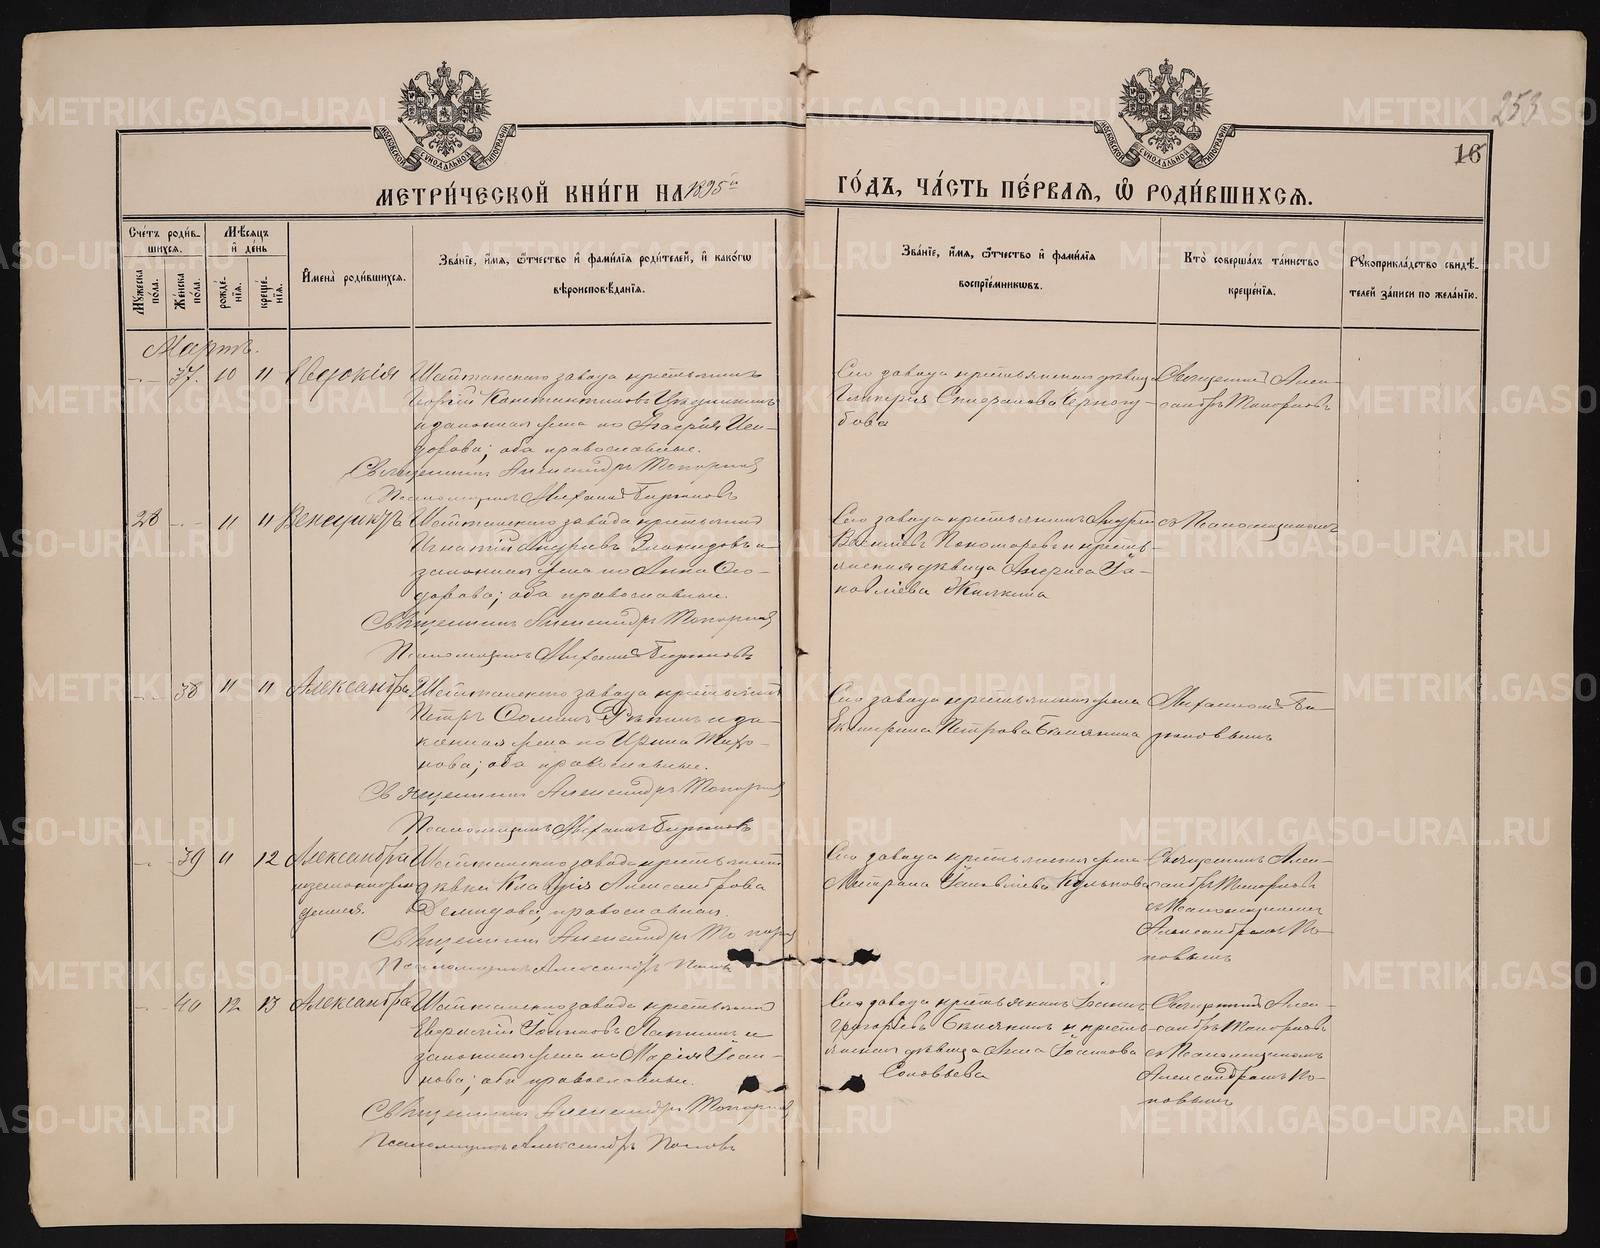 253
16
МЕТРИ́ЧЕСКОЙ КНИ́ГИ НА 1895й
ГО́ДЪ, ЧА́СТЬ ПЕ́РВАѦ, Ѽ РОДИ́ВШИХСѦ.
Сче́тъ роди́в-
шихсѧ.
Мѣ́сѧцъ
и҆ де́нь
Мꙋжеска по́ла.
Же́нска по́ла.
рожде́-
нїѧ.
креще́-
нїѧ.
И҆мена̀ роди́вшихсѧ.
Зва́нїе, и҆́мѧ, ѻ҆́тчество и҆ фами́лїѧ роди́телей, и҆ како́гѡ
вѣроисповѣ́данїѧ.
Зва́нїе, и҆́мѧ, ѻ҆́тчество и҆ фами́лїѧ
воспрїе́мникѡвъ.
Кто̀ соверша́лъ та́инство
креще́нїѧ.
Рꙋкоприкла́дство свидѣ́-
телей за́писи по жела́нїю.
Мартъ.
37. 10 11 Евдокія
Шайтанскаго завода крестьянинъ
Константиновъ
и законная жена его
; оба православные.
Священникъ Александръ Топорковъ
Псаломщикъ Михаилъ Бирюковъ
Сего завода крестьянская дѣвица
Гликерія Чернозу-
бова
Священникъ Алек-
сандръ Топорковъ
28 11 11 Венедиктъ
Шайтанскаго завода крестьянинъ
Игнатій Андреевъ и
законная жена его Анна Ѳео-
дорова; оба православные.
Священникъ Александръ Топорковъ
Псаломщикъ Михаилъ Бирюковъ
Сего завода крестьянинъ Андрей
Васильевъ Пономаревъ и кресть-
янская дѣвица Іа-
ковлева
съ Псаломщикомъ
38 11 11 Александра
Шайтанскаго завода крестьянинъ
Петръ Ѳоминъ и за-
конная жена его Ирина Тихо-
нова; оба православные.
Священникъ Александръ Топорковъ
Псаломщикъ Михаилъ Бирюковъ
Сего завода крестьянская жена
Екатерина Петрова
Михаиломъ Би-
рюковымъ
39 11 12 Александра
незаконнорож-
денная.
Шайтанскаго завода крестьянской
дѣвки Клавдія Александрова
Демидова, православная.
Священникъ Александръ Топорковъ
Псаломщикъ Александръ Поповъ
Сего завода крестьянская жена
Матрона Іаковлева Кулькова
Священникъ Алек-
сандръ Топорковъ
съ Псаломщикомъ
Александромъ По-
повымъ
40 12 13 Александра
Шайтанскаго завода крестьянинъ
Іоанновъ и
законная жена его Марія Іоан-
нова; оба православные.
Священникъ Александръ Топорковъ
Псаломщикъ Александръ Поповъ
Сего завода крестьянинъ Іоаннъ
Григорьевъ и кресть-
янская дѣвица Анна Іоаннова
Соловьева
Священникъ Алек-
сандръ Топорковъ
съ Псаломщикомъ
Александромъ По-
повымъ
METRIKI.GASO-URAL.RU